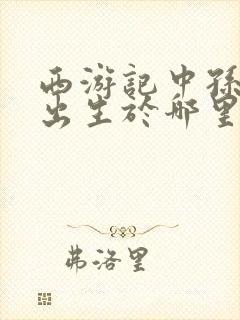 西游記中孫
出生於哪里
弗洛里